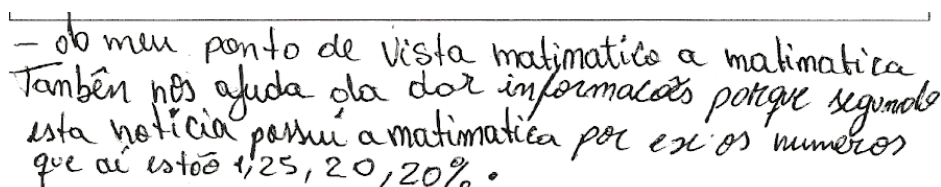 - do meu ponto de vista matimatico a matimatica
Tambên nos ajuda da dar informacoẽs porque segundo
esta noticia possui a matimatica por ex: os numeros
que ai estoõ 1,25, 20, 20%.